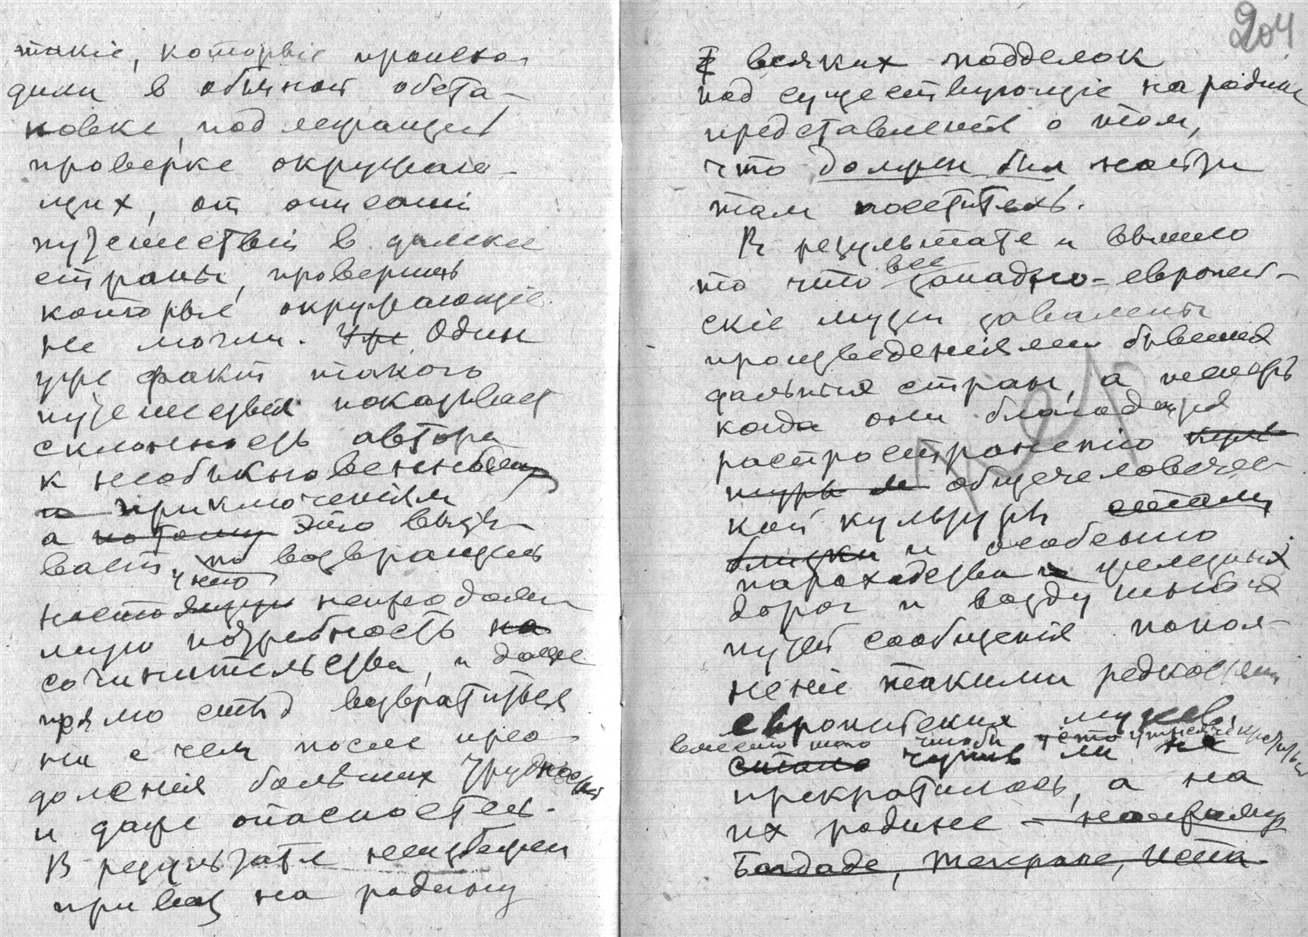 такіе, которыіе происхо
дили в обычной обста-
новке, подлежащей
проверке окружаю-
щих, от описаній
путешествій в далекіе
страны, проверить
которые окружающіе
не могли. Уже Один
уже факт такого
путешествія показывает
склонность автора
к необыкновенным
и приключеніям
а потому это вызы-
вает, по возвращеніи
чисто
непреодоли
мую потребность на
сочинительства, и даже
прямо стыд возвратиться
ни с чем после прео-
доленія больших трудностей
и даже опасностей.
В результате неизбежен
привоз на родину
204
всяких подделок
под существующіе на родине
представленія о том,
что должен был найти
там посетитель.
В результате и вышло
все
то что западно-европей-
скіе музеи завалены
произведеніями бывшей
дальних стран, а теперь
когда они благодаря
распространенію
общечеловечес-
кой культуры стали
близки и особенно
пароходства и железных
дорог и воздушных
путей сообщенія попол-
неніе такими редкостями
европейских музеев
вместо того чтобы
стало чуть ли не
прекратилось, а на
их родине — например
Багдаде, Тегеране,